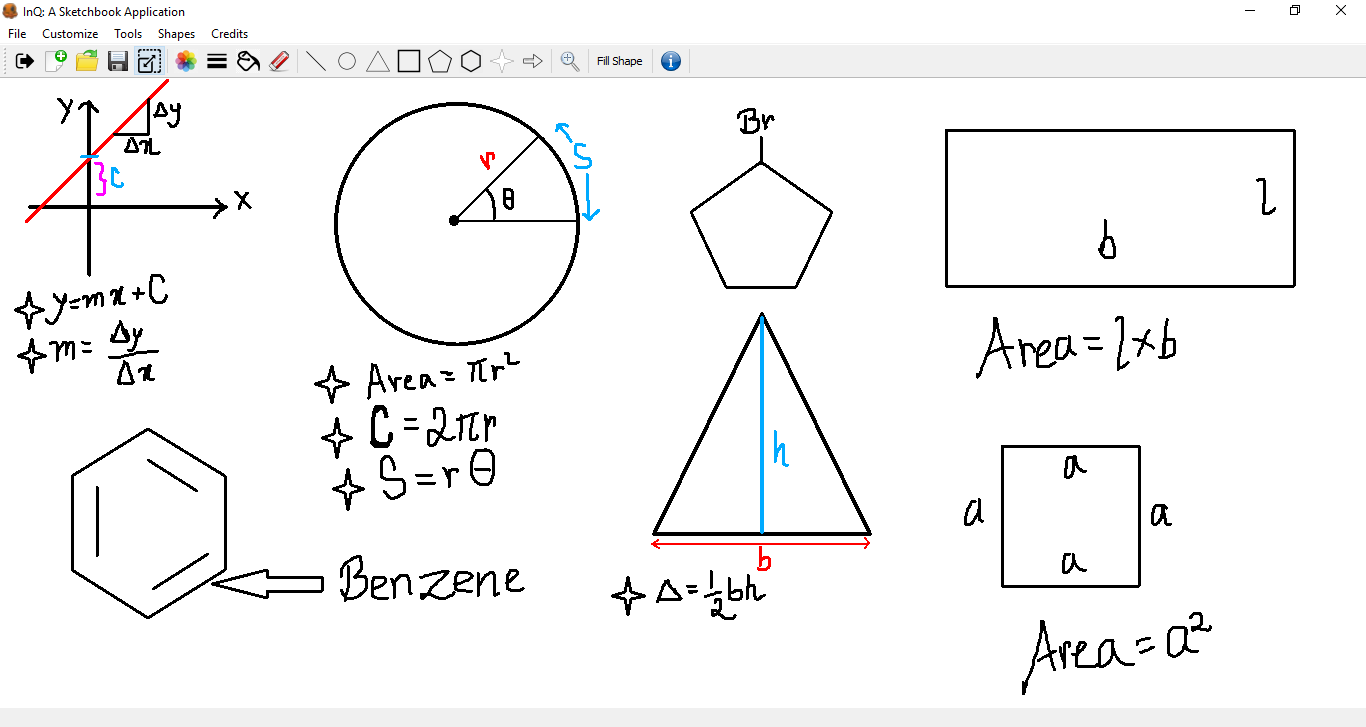 InQ: A Sketchbook Application
File Customize Tools Shapes Credits
Fill Shape
y
Δy
Δx
C
x
y=mx+C
m= Δy/Δx
r
θ
S
Area=πr²
C=2πr
S=rθ
Br
h
b
Δ=½bh
l
b
Area=l×b
Benzene
a
a
a
a
Area=a²